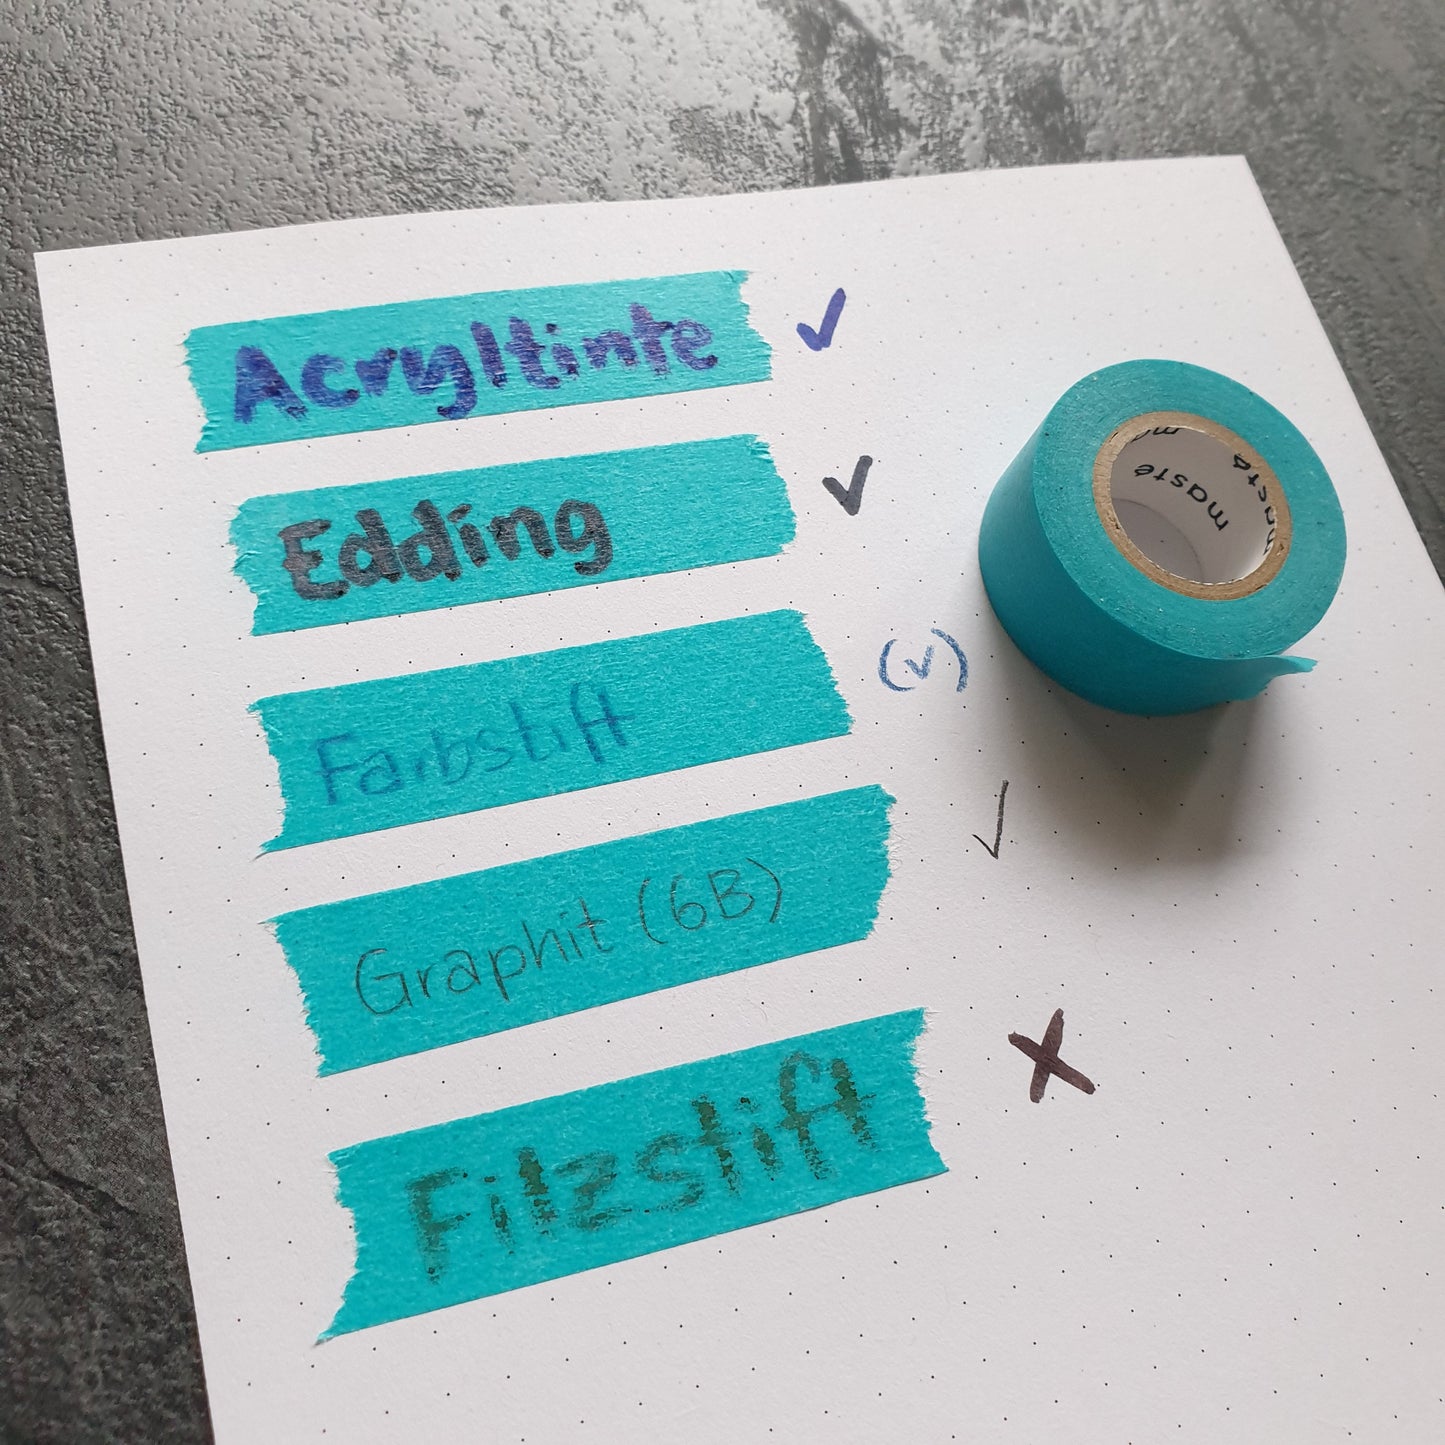 Acryltinte ✓
Edding ✓
Farbstift (✓)
Graphit (6B) ✓
Filzstift ✗
masté
masté